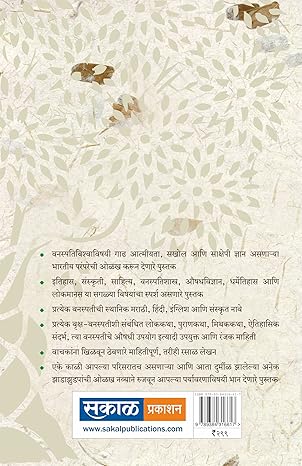 • वनस्पतिविश्वाविषयी गाढ आत्मीयता, सखोल आणि साक्षेपी ज्ञान असणाऱ्या
भारतीय परंपरेची ओळख करून देणारे पुस्तक
• इतिहास, संस्कृती, साहित्य, वनस्पतिशास्त्र, औषधविज्ञान, धर्मेतिहास आणि
लोकमानस या सगळ्या विषयांचा स्पर्श असणारे पुस्तक
• प्रत्येक वनस्पतीची स्थानिक मराठी, हिंदी, इंग्लिश आणि संस्कृत नावे
• प्रत्येक वृक्ष-वनस्पतीशी संबंधित लोककथा, पुराणकथा, मिथककथा, ऐतिहासिक
संदर्भ, त्या वनस्पतीचे औषधी उपयोग इत्यादी उपयुक्त आणि रंजक माहिती
• वाचकांना खिळवून ठेवणारे माहितीपूर्ण, तरीही रसाळ लेखन
• एके काळी आपल्या परिसरातच असणाऱ्या आणि आता दुर्मीळ झालेल्या अनेक
झाडाझुडपांची ओळख नव्याने रुजवून आपल्या पर्यावरणाविषयी भान देणारे पुस्तक
सकाळ प्रकाशन
www.sakalpublications.com
₹२९९